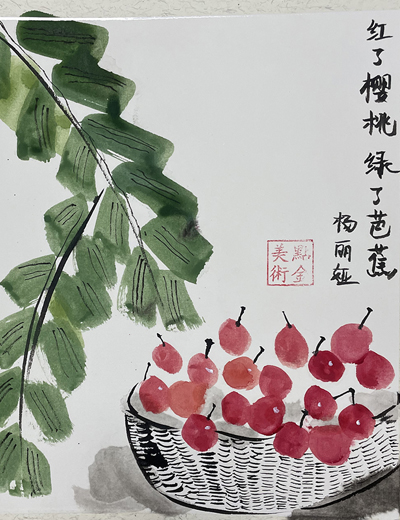 红了樱桃绿了芭蕉
杨丽娅
點金
美術